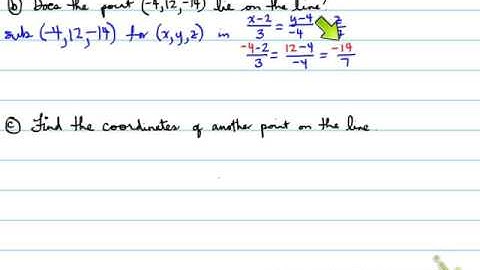 b) Does the point (-4,12,-14) lie on the line?
sub (-4,12,-14) for (x,y,z) in x-2/3 = y-4/-4 = z/7
-4-2/3 = 12-4/-4 = -14/7
c) Find the coordinates of another point on the line.